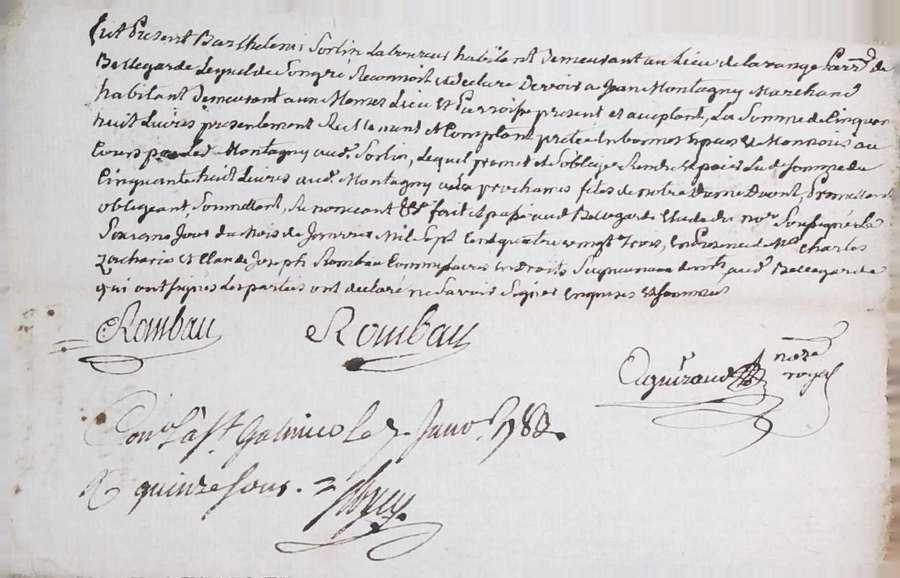 fut Present Barthelemi Sorlin Laboureur habitant demeurant au Lieu de la range Parr.sse de
Bellegarde Lequel de Son gré Reconnoit et declare Devoir a Jean Montagny Marchand
habitant demeurant au Memes Lieu et Parroisse present et aceptant, La Somme de Cinquante
huit Livres presentement et Comptant en bonnes Especes et Monnois au
Cours par Led. Montagny aud. Sorlin, Lequel promet et Soblige Rendre et paier Lad. Somme de
Cinquante huit Livres aud. Montagny prochaines fêtes de notre Dame Promettant
obligeant, Soumettant, Renoncant &c. fait et passé aud. Bellegarde Etude du no.re Soussigné Le
Jour du Mois de Janvier Mil Sept Cent quatre vingt trois, en Presence de M.rs Charles
Zacharie et Claude Joseph Rombau Commissaires en droits Seigneuriaux aud. Bellegarde
qui ont signés Les parties ont declaré ne Savoir Signer enquises et Sommées
Rombau Rombau
no.re
royal
Con.lé à St. Galmier Le 7 Janv. 1783.
R. quinze Sous.